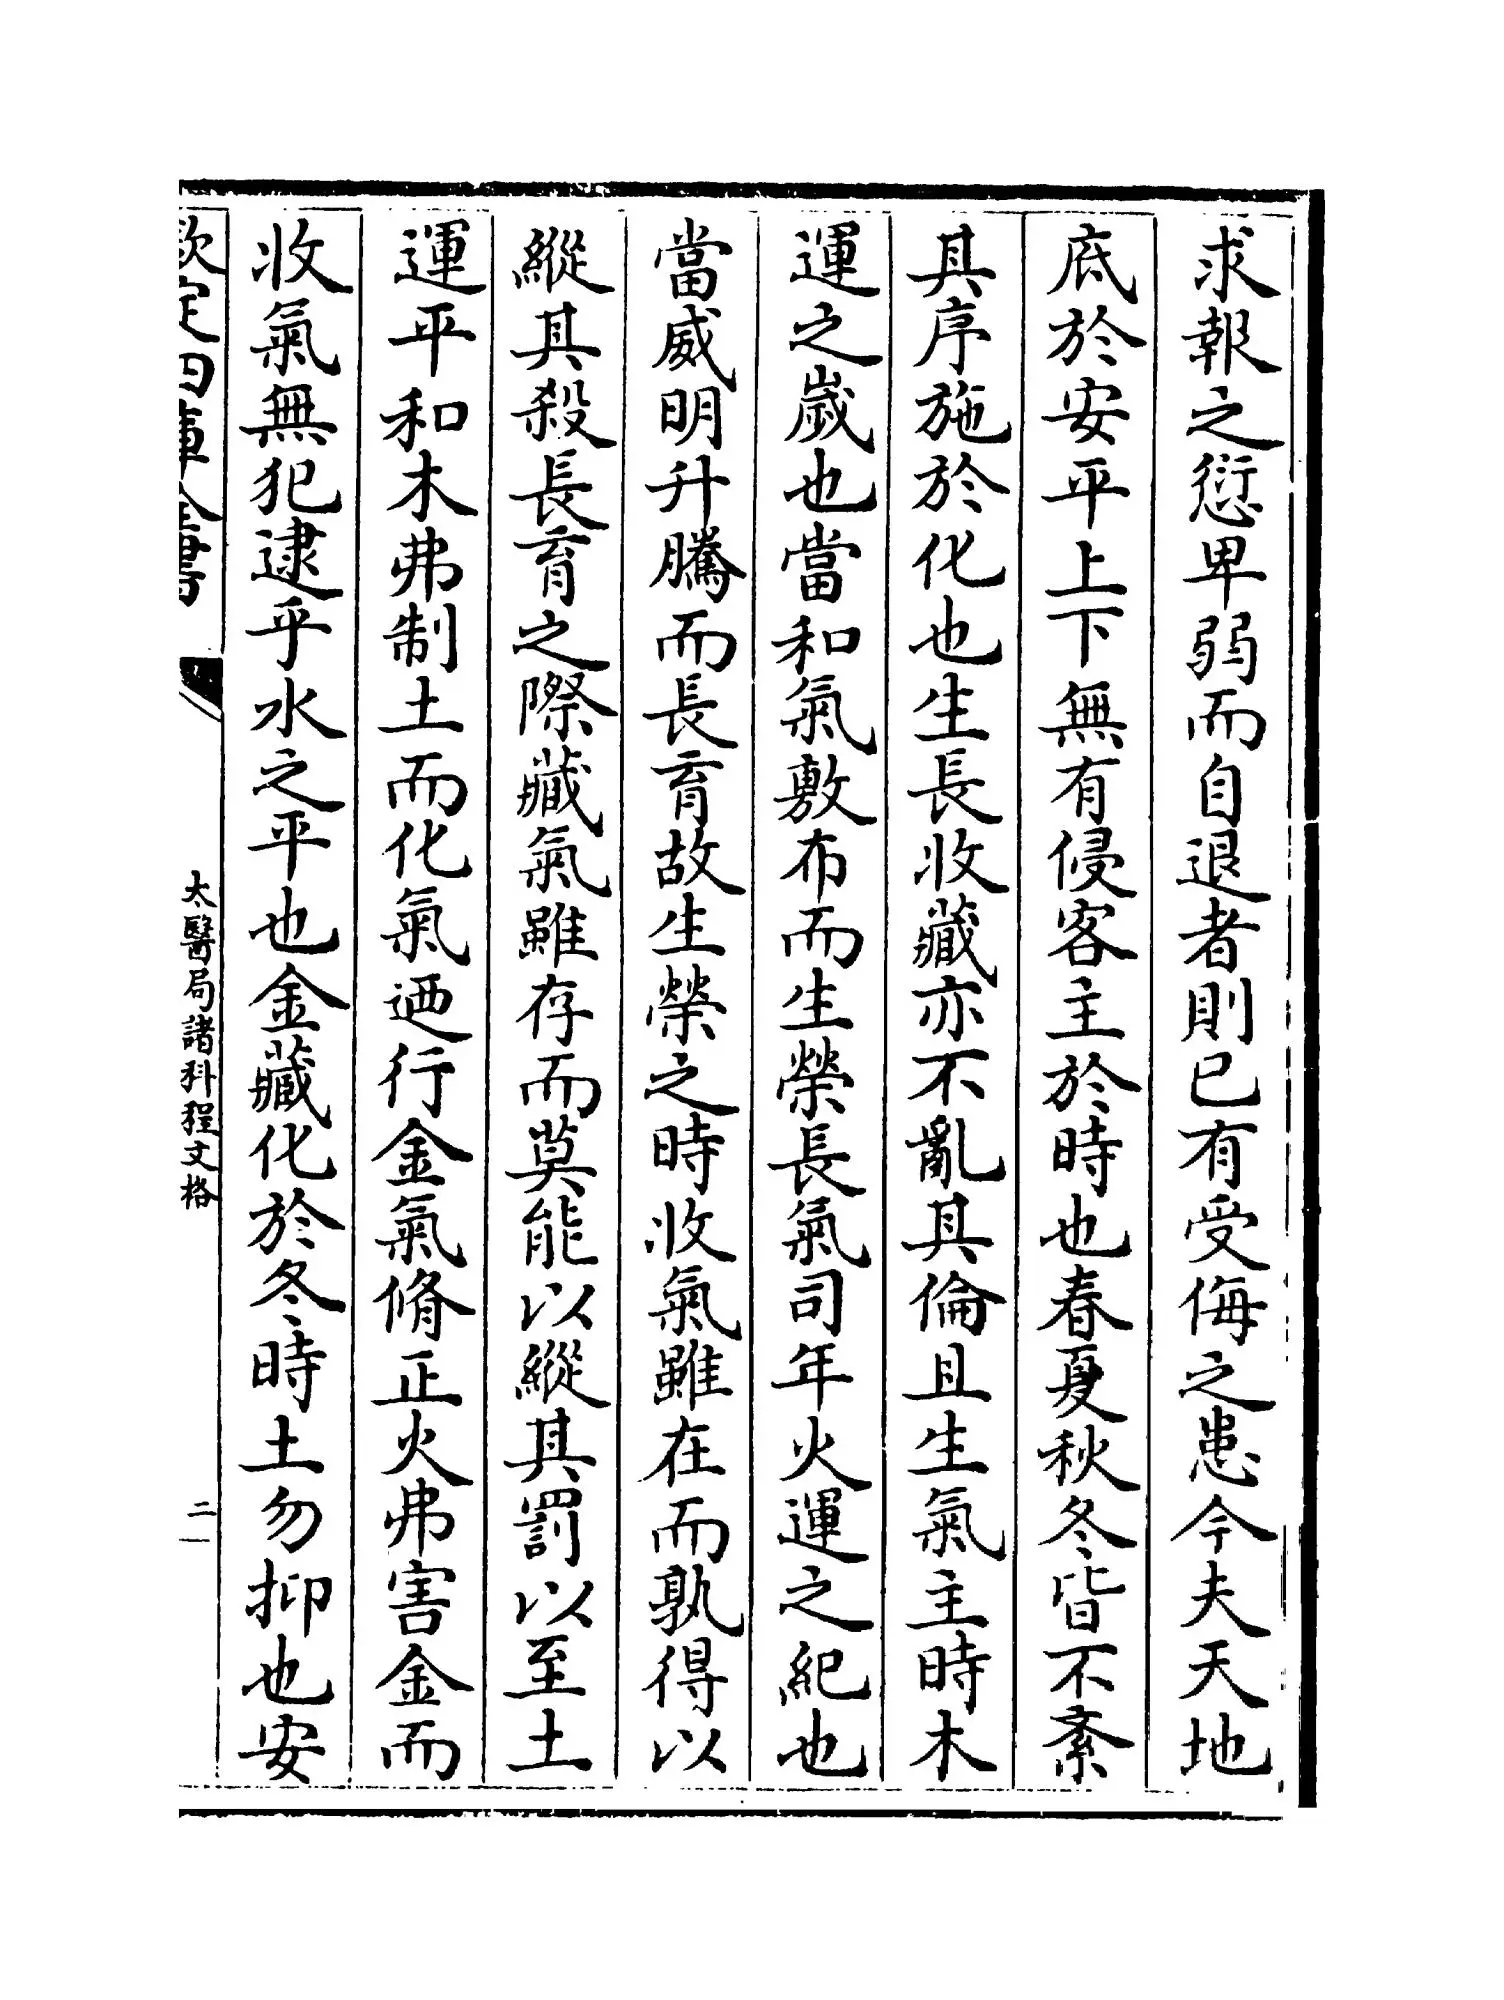 求報之愆卑弱而自退者則已有受侮之患今夫天地
底於安平上下無有侵客主於時也春夏秋冬皆不紊
其序施於化也生長收藏亦不亂其倫且生氣主時木
運之歲也當和氣敷布而生榮長氣司年火運之紀也
當威明升騰而長育故生榮之時收氣雖在而孰得以
縱其殺長育之際藏氣雖存而莫能以縱其罰以至土
運平和木弗制土而化氣迺行金氣脩正火弗害金而
收氣無犯逮乎水之平也金藏化於冬時土勿抑也安
欽定四庫全書
太醫局諸科程文格
二